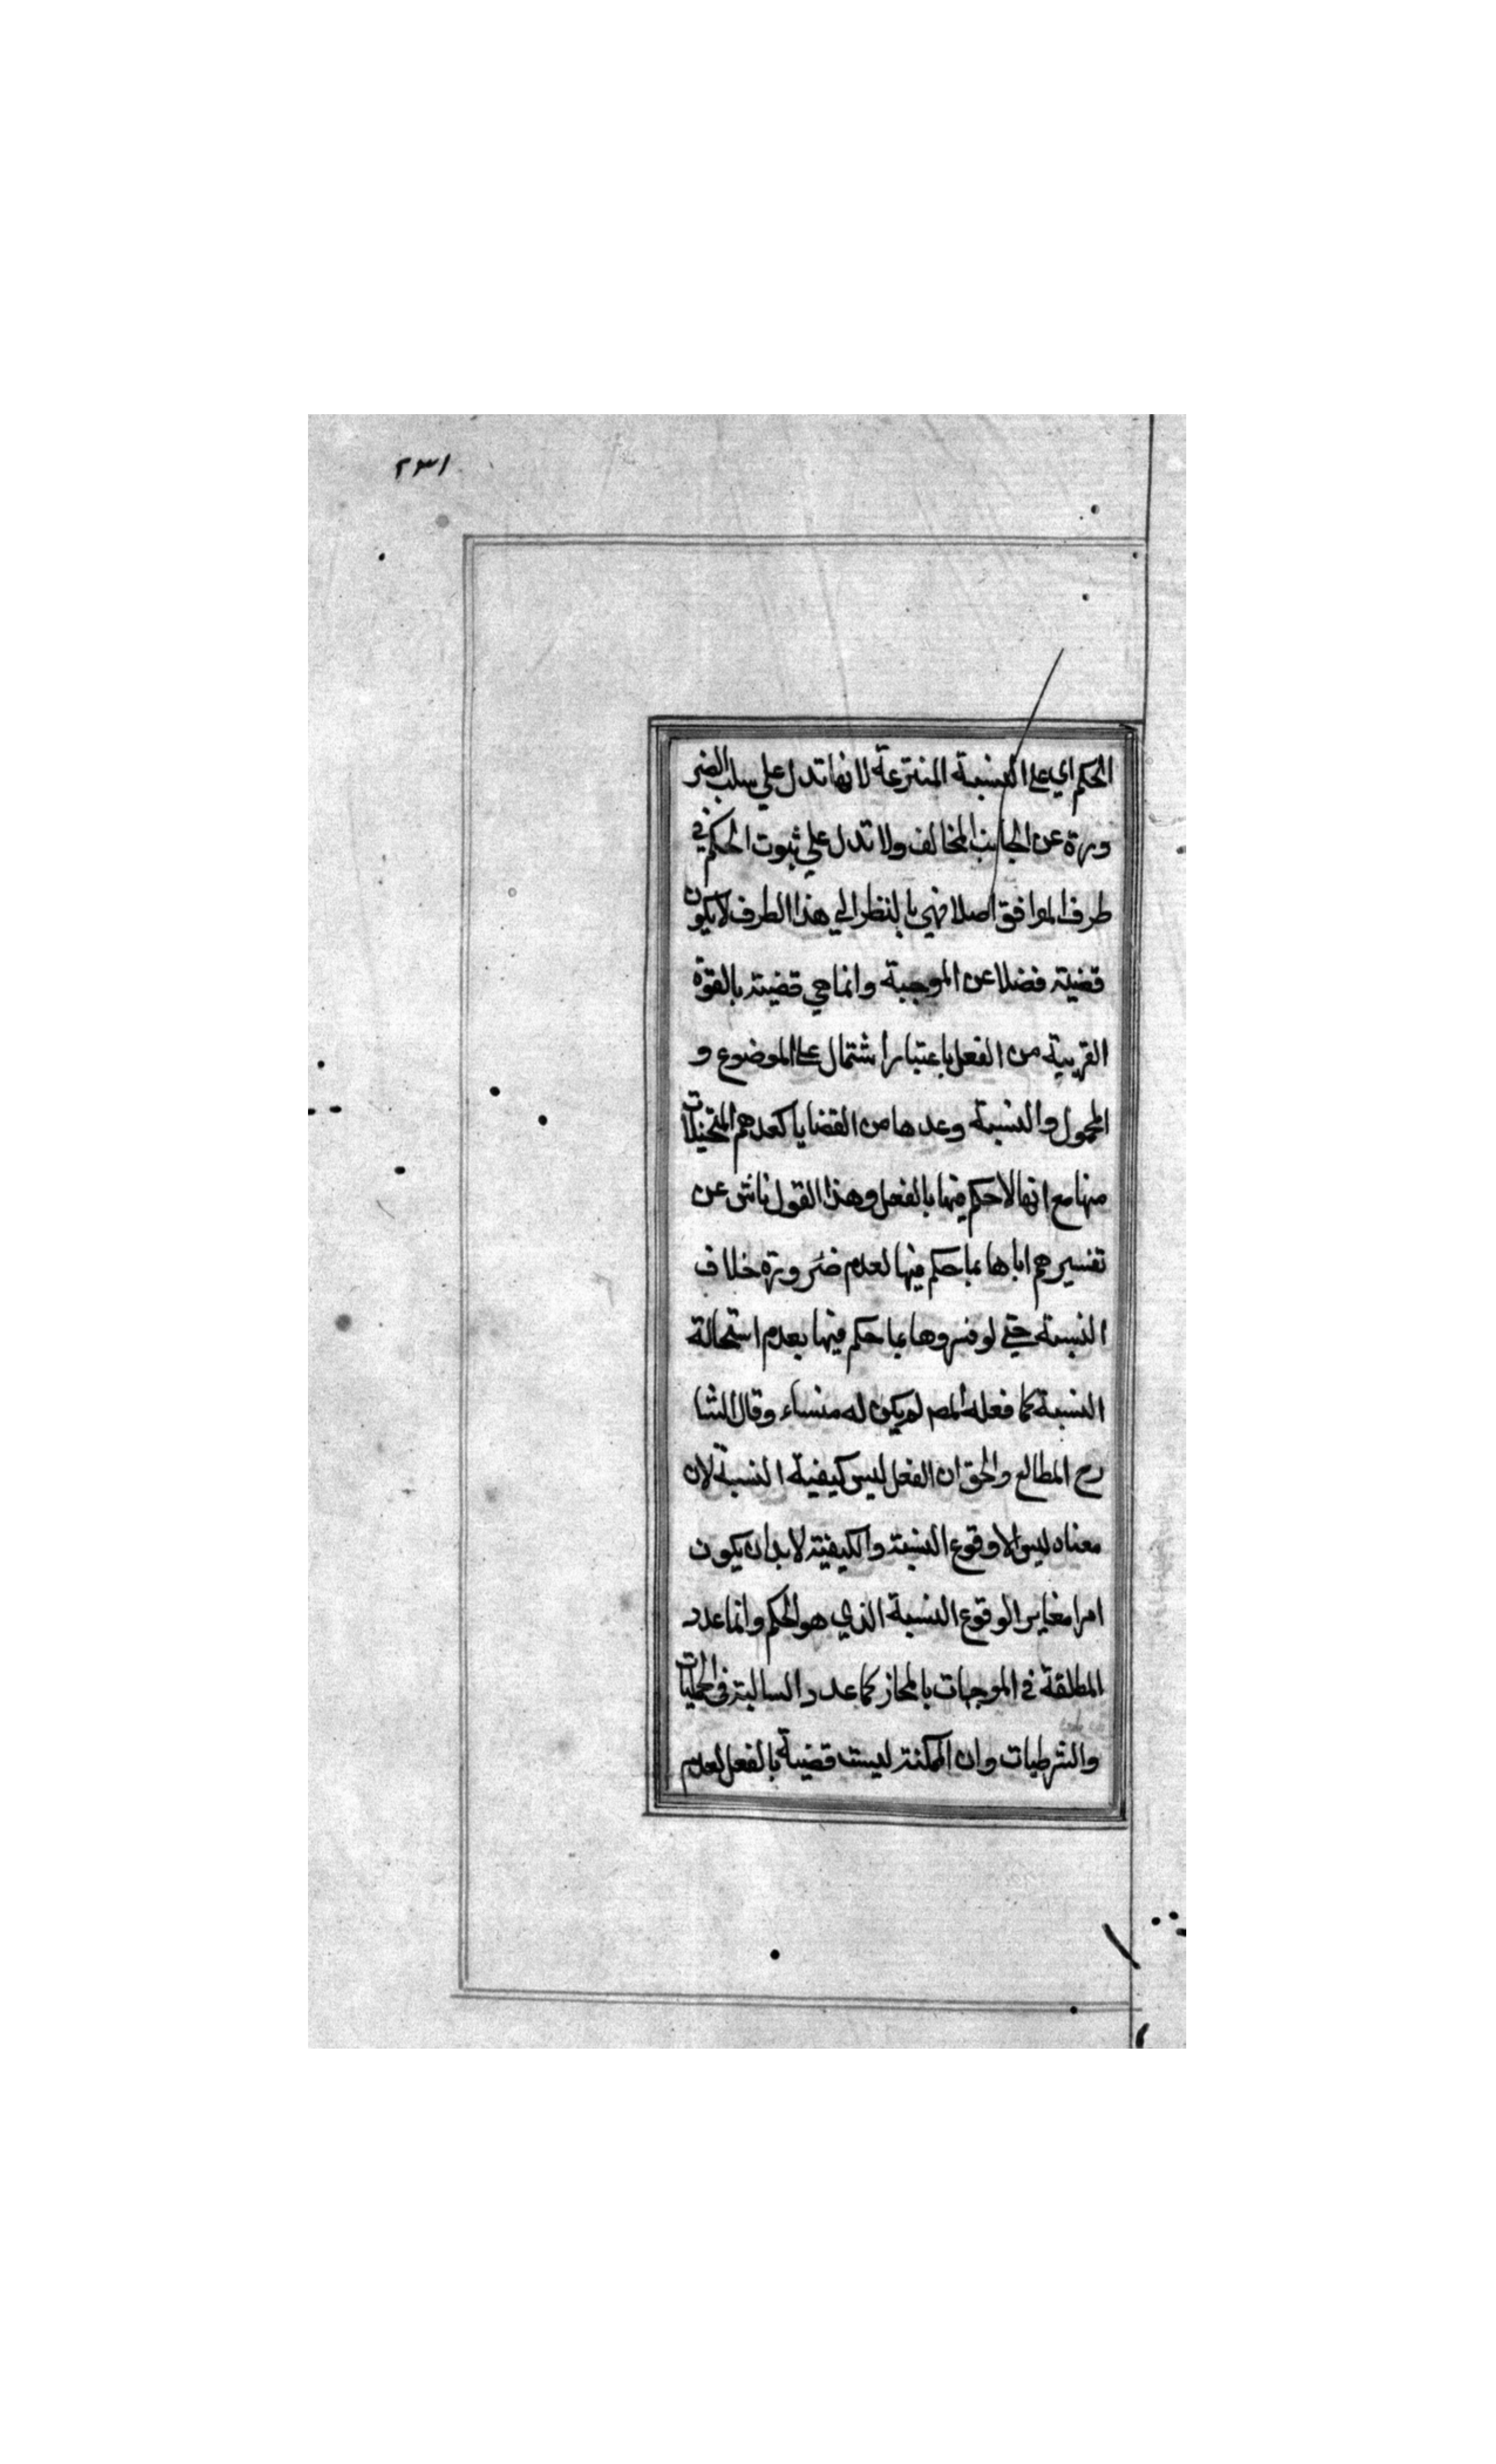 ٢٣١
الحكم اي على النسبة المنتزعة لانها تدل علي سلب الضر
ورة عن الجانب المخالف ولا تدل علي ثبوت الحكم في
طرف الموافق اصلا فهي بالنظر الي هذا الطرف لا يكون
قضية فضلا عن الموجبة وانما هي قضية بالقوة
القريبة من الفعل باعتبار اشتمال على الموضوع و
المحمول والنسبة وعدها من القضايا كعدهم المتخيلات
منها مع انها لا حكم فيها بالفعل وهذا القول ناش عن
تفسيرهم اياها بما حكم فيها لعدم ضرورة خلاف
النسبة حتي لو فسروها بما حكم فيها بعدم استحالة
النسبة كما فعله المص لم يكن له منساء وقال الشا
رح المطالع والحق ان الفعل ليس كيفية النسبة لان
معناه ليس الا وقوع النسبة والكيفية لا بد ان يكون
امرا مغاير الوقوع النسبة الذي هو الحكم وانما عدد
المطلقة في الموجهات بالمجاز كما عدد السالبة في الحمليات
والشرطيات وان الممكنة ليست قضية بالفعل لعدم